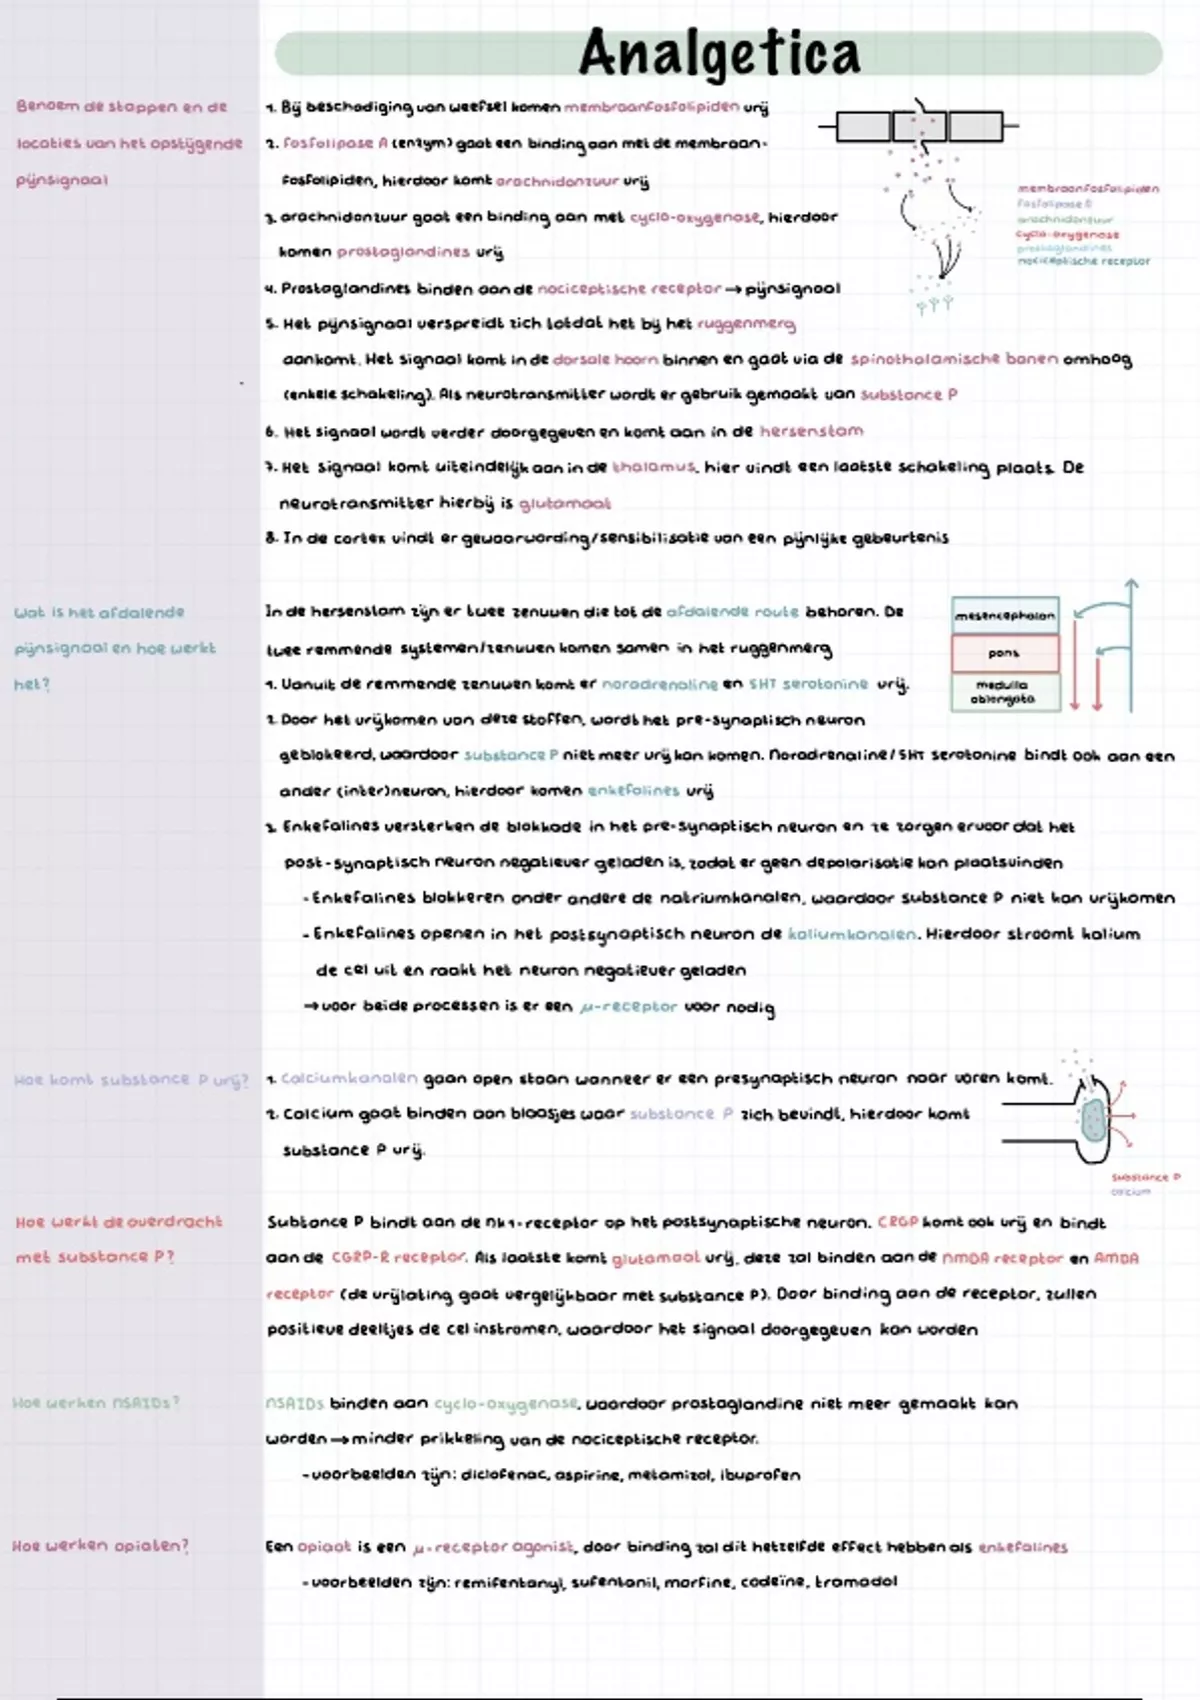 Analgetica
Benoem de stappen en de
locaties van het opstijgende
pijnsignaal
1. Bij beschadiging van weefsel komen membraanfosfolipiden vrij
2. fosfolipase A (enzym) gaat een binding aan met de membraan-
fosfolipiden, hierdoor komt arachnidonzuur vrij
3. arachnidonzuur gaat een binding aan met cyclo-oxygenase, hierdoor
komen prostaglandines vrij
4. Prostaglandines binden aan de nociceptische receptor → pijnsignaal
membraanfosfolipiden
fosfolipase A
arachnidonzuur
cyclo-oxygenase
prostaglandines
nociceptische receptor
5. Het pijnsignaal verspreidt zich totdat het bij het ruggenmerg
aankomt. Het signaal komt in de dorsale hoorn binnen en gaat via de spinothalamische banen omhoog
(enkele schakeling). Als neurotransmitter wordt er gebruik gemaakt van substance P
6. Het signaal wordt verder doorgegeven en komt aan in de hersenstam
7. Het signaal komt uiteindelijk aan in de thalamus, hier vindt een laatste schakeling plaats. De
neurotransmitter hierbij is glutamaat
8. In de cortex vindt er gewaarwording/sensibilisatie van een pijnlijke gebeurtenis
Wat is het afdalende
pijnsignaal en hoe werkt
het?
In de hersenstam zijn er twee zenuwen die tot de afdalende route behoren. De
twee remmende systemen/zenuwen komen samen in het ruggenmerg
1. Vanuit de remmende zenuwen komt er noradrenaline en 5HT serotonine vrij.
mesencephalon
pons
medulla
oblongata
2. Door het vrijkomen van deze stoffen, wordt het pre-synaptisch neuron
geblokeerd, waardoor substance P niet meer vrij kan komen. Noradrenaline/5HT serotonine bindt ook aan een
ander (inter)neuron, hierdoor komen enkefalines vrij
3. Enkefalines versterken de blokkade in het pre-synaptisch neuron en ze zorgen ervoor dat het
post-synaptisch neuron negatiever geladen is, zodat er geen depolarisatie kan plaatsvinden
- Enkefalines blokkeren onder andere de natriumkanalen, waardoor substance P niet kan vrijkomen
- Enkefalines openen in het postsynaptisch neuron de kaliumkanalen. Hierdoor stroomt kalium
de cel uit en raakt het neuron negatiever geladen
→ voor beide processen is er een μ-receptor voor nodig
Hoe komt substance P vrij?
1. Calciumkanalen gaan open staan wanneer er een presynaptisch neuron naar voren komt.
2. Calcium gaat binden aan blaasjes waar substance P zich bevindt, hierdoor komt
substance P vrij.
substance P
calcium
Hoe werkt de overdracht
met substance P?
Subtance P bindt aan de NK1-receptor op het postsynaptische neuron. CRGP komt ook vrij en bindt
aan de CGRP-R receptor. Als laatste komt glutamaat vrij, deze zal binden aan de NMDA receptor en AMDA
receptor (de vrijlating gaat vergelijkbaar met substance P). Door binding aan de receptor, zullen
positieve deeltjes de cel instromen, waardoor het signaal doorgegeven kan worden
Hoe werken NSAIDs?
NSAIDs binden aan cyclo-oxygenase, waardoor prostaglandine niet meer gemaakt kan
worden → minder prikkeling van de nociceptische receptor.
- voorbeelden zijn: diclofenac, aspirine, metamizol, ibuprofen
Hoe werken opiaten?
Een opiaat is een μ-receptor agonist, door binding zal dit hetzelfde effect hebben als enkefalines
- voorbeelden zijn: remifentanyl, sufentanil, morfine, codeïne, tramadol